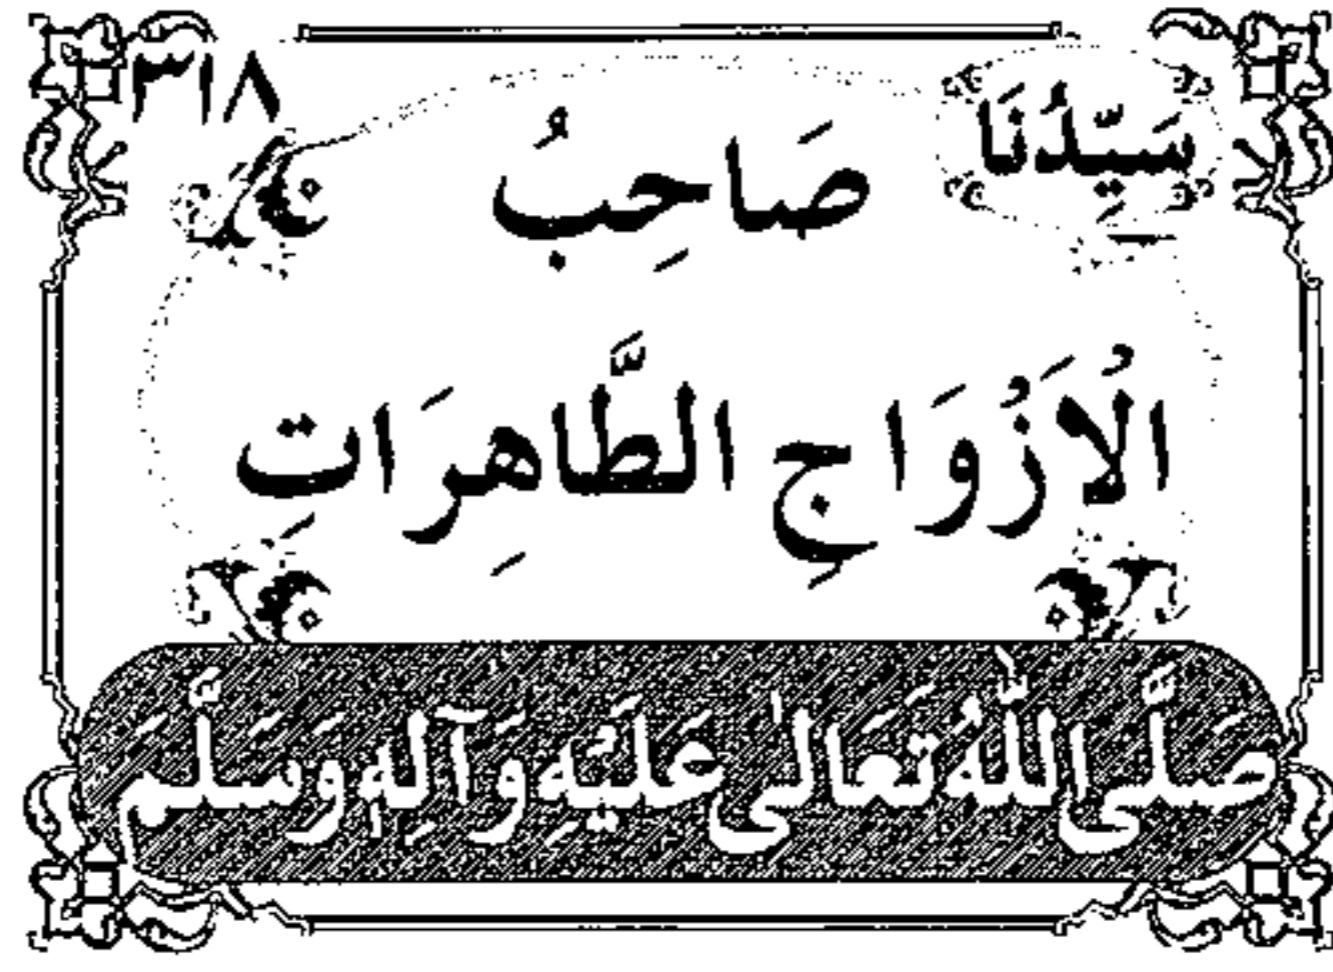 ٣١٨
سَيِّدُنَا
صَاحِبُ
الْاَزْوَاجِ الطَّاهِرَاتِ
صَلَّى اللّٰهُ تَعَالٰى عَلَيْهِ وَآلِهٖ وَسَلَّمَ